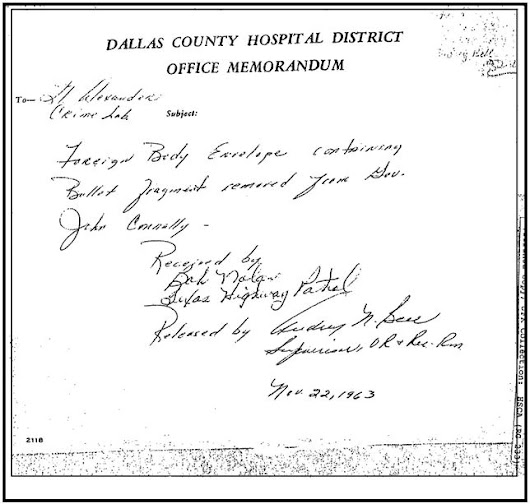 DALLAS COUNTY HOSPITAL DISTRICT
OFFICE MEMORANDUM
To— Lt Alexander
Crime Lab Subject:
Foreign Body Envelope containing
Bullet fragment removed from Gov.
John Connally -
Received by
Bob Nolan
Texas Highway Patrol
Released by Audrey N. Bell
Supervisor, OR & Rec. Rm
Nov. 22, 1963
2118